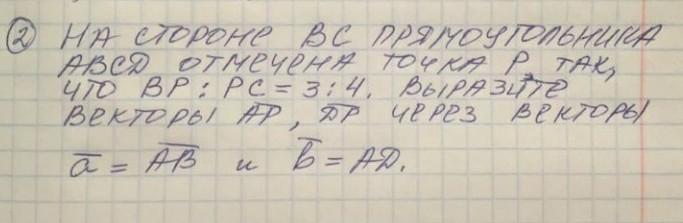 ② НА СТОРОНЕ ВС ПРЯМОУГОЛЬНИКА
ABCD ОТМЕЧЕНА ТОЧКА Р, ТАК,
ЧТО ВР : РС = 3 : 4. ВЫРАЗИТЕ
ВЕКТОРЫ A̅P̅, D̅P̅ ЧЕРЕЗ ВЕКТОРЫ
a̅ = A̅B̅ и b̅ = AD.